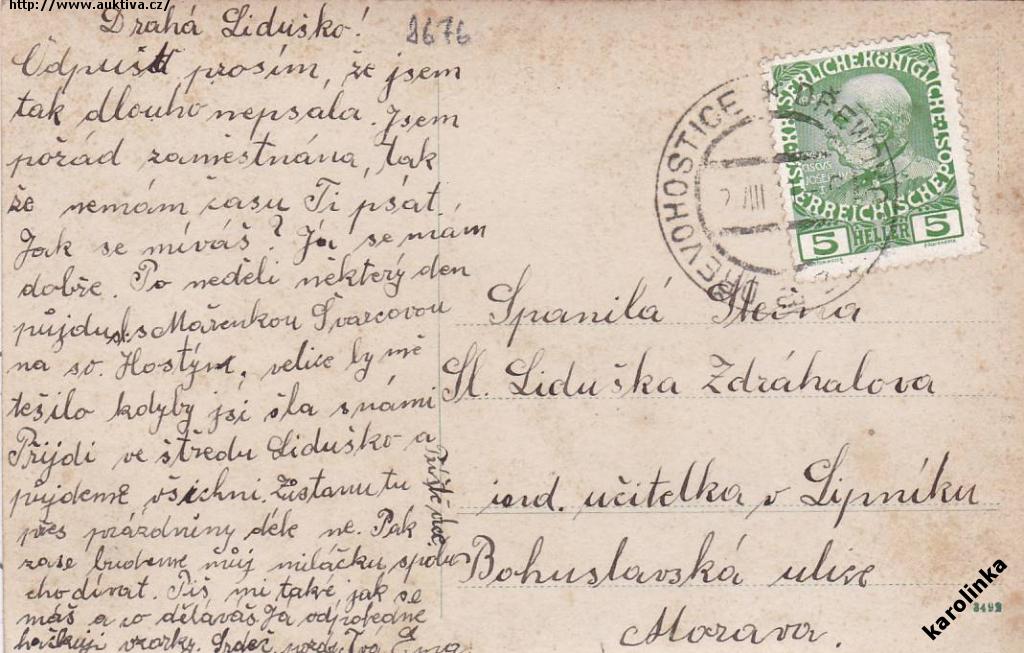 http://www.auktiva.cz/
Drahá Liduško!
8676
Odpusť prosím, že jsem
tak dlouho nepsala. Jsem
pořád zaměstnána, tak
že nemám času Ti psát.
Jak se míváš? Já se mám
dobře. Po neděli některý den
půjdu s Mařenkou Švarcovou
na sv. Hostýn, velice by mě
těšilo kdyby jsi šla s námi
Přijdi ve středu Liduško a
půjdeme všichni. Zůstanu tu
přes prázdniny déle ne. Pak
zase budeme můj miláčku, spolu
chodívat. Piš mi také, jak se
máš a co děláváš Já odpoledne
háčkuji vzorky. Srdeč. pozdr. Tvá Ema
Příště více.
DŘEVOHOSTICE
KAISERLICHE KÖNIGLICHE
ÖSTERREICHISCHE POST
5 HELLER 5
VIII
Spanilá Slečna
Sl. Liduška Zdráhalova
ind. učitelka v Lipníku
Bohuslavská ulice
Morava.
3492
karolinka